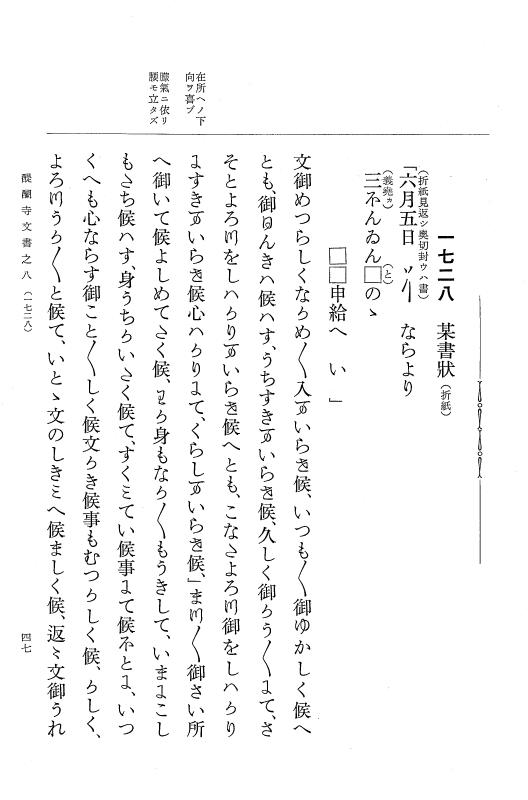 一七二八　某書狀（折紙）
（折紙見返シ奥切封ウハ書）
「六月五日　〆　ならより
（義堯カ）
三ほんゐん□（と）のゝ
□□申給へ　い　」
文御めつらしくなかめ〳〵入まいらせ候、いつも〳〵御ゆかしく候へ
とも、御ひんきハ候ハす、うちすきまいらせ候、久しく御かう〳〵にて、さ
そとよろつをしハかりまいらせ候へとも、こなたよろつ御をしハかり
にすきまいらせ候心ハかりにて、くらしまいらせ候、」まつ〳〵御さい所
へ御いて候よしめてたく候、わか身もなか〳〵もうきして、いまにこし
もたち候ハす、身うちかいたく候て、すくミてい候事にて候ほとに、いつ
くへも心ならす御こと〳〵しく候文かき候事もむつかしく候、かしく、
よろつうか〳〵と候て、いとゝ文のしきミへ候ましく候、返〻文御うれ
在所ヘノ下
向ヲ喜ブ
朦氣ニ依リ
腰モ立タズ
醍醐寺文書之八（一七二八）
四七